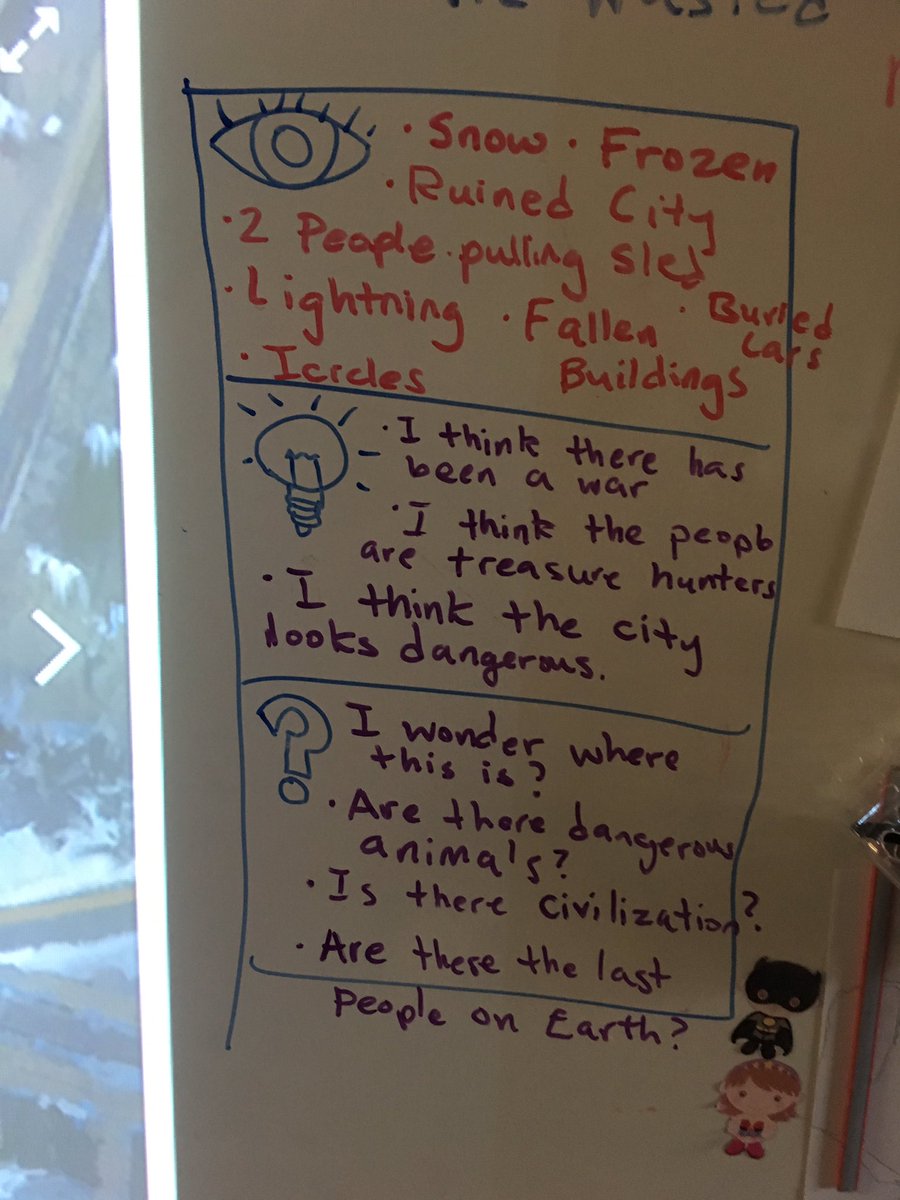 · Snow · Frozen
· Ruined City
· 2 People · pulling sled
· Lightning · Fallen Buildings · Buried Cars
· Icicles
· I think there has
been a war
· I think the people
are treasure hunters
· I think the city
looks dangerous.
I wonder where
this is?
· Are there dangerous
animals?
· Is there civilization?
· Are these the last
People on Earth?